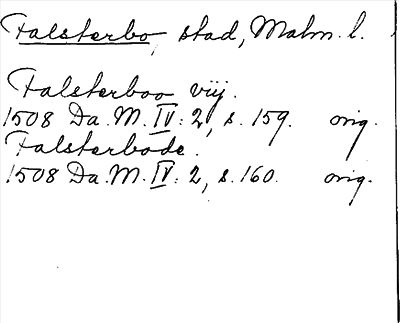 Falsterbo, stad, Malm. l.
Falsterboo vüj.
1508 Da. M. IV: 2, s. 159. orig.
Falsterbode.
1508 Da. M. IV: 2, s. 160. orig.